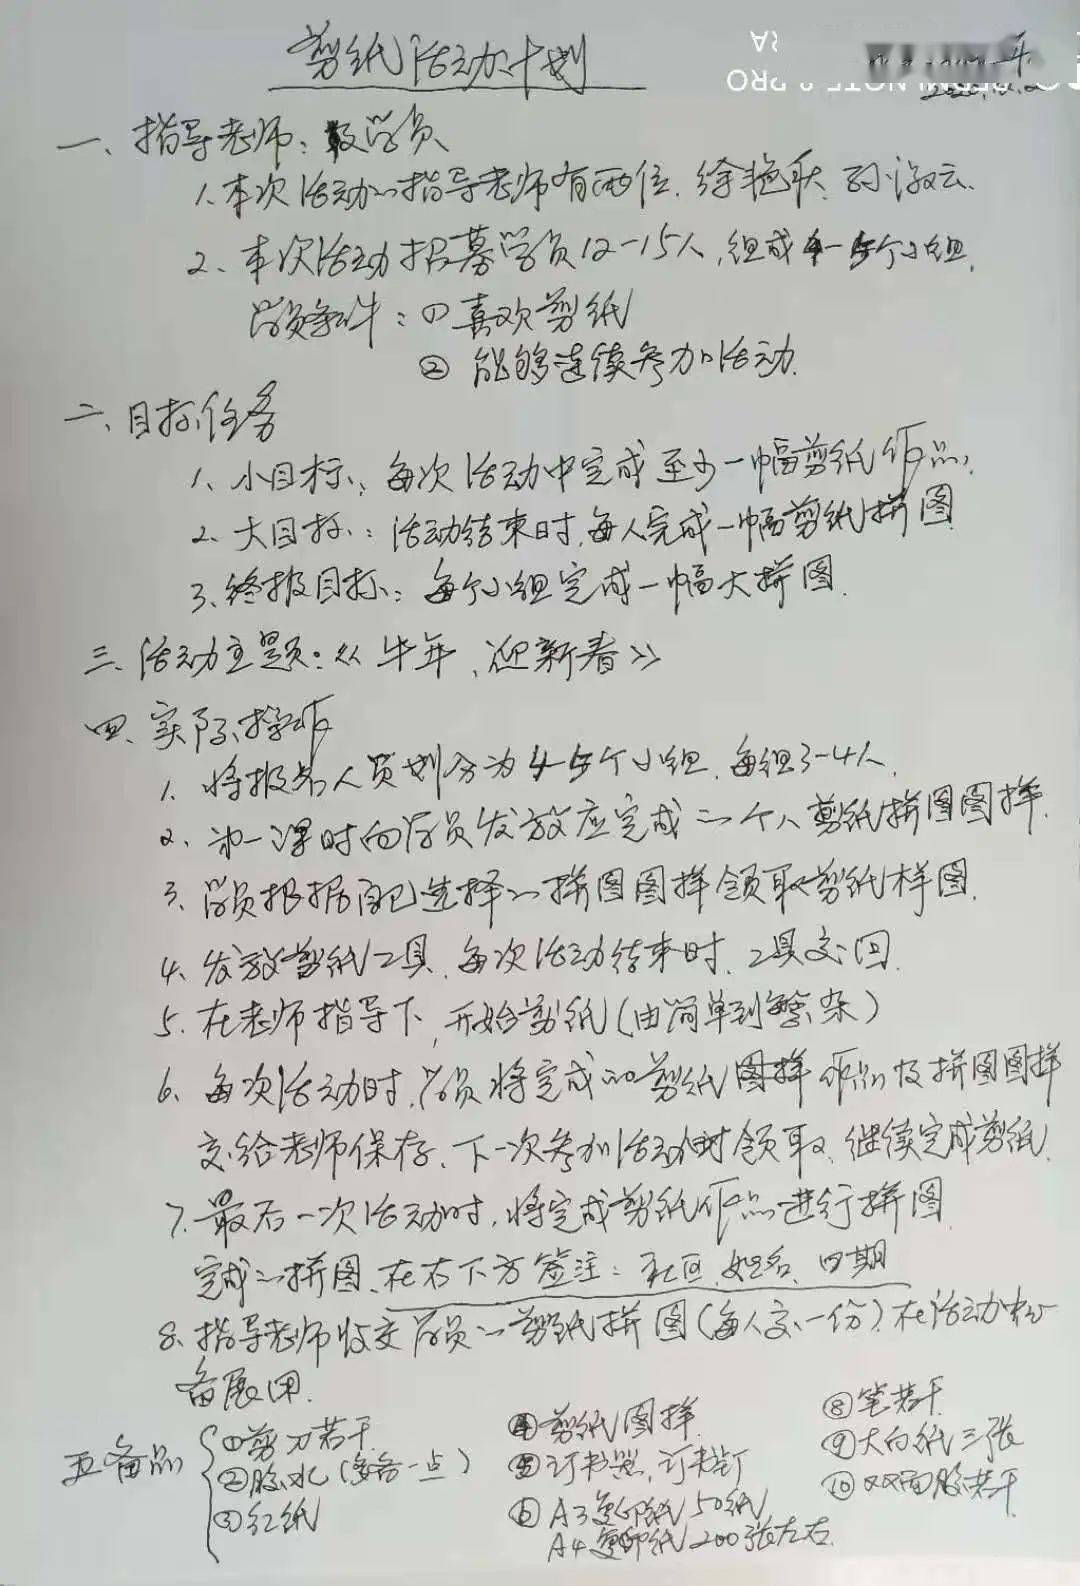 剪纸活动计划
一、指导老师：及学员
1.本次活动的指导老师有两位.徐艳秋.孙淑云.
2、本次活动招募学员12-15人,组成4-5个小组.
学员条件：①喜欢剪纸
②能够连续参加活动.
二、目标任务
1、小目标：每次活动中完成至少一幅剪纸作品.
2、大目标：活动结束时.每人完成一幅剪纸拼图
3、终极目标：每个小组完成一幅大拼图.
三、活动主题：《牛年、迎新春》
四、实际操作
1、将报名人员划分为4-5个小组、每组3-4人.
2、第一课时向学员发放应完成的个人剪纸拼图图样.
3、学员根据自己选择的拼图图样领取剪纸样图.
4、发放剪纸工具、每次活动结束时、工具交回.
5、在老师指导下,开始剪纸(由简单到繁杂)
6、每次活动时.学员将完成的剪纸图样作品及拼图图样
交给老师保存、下一次参加活动时领取、继续完成剪纸.
7、最后一次活动时,将完成剪纸作品进行拼图
完成的拼图、在右下方签注：社区、姓名、日期
8、指导老师收交学员的剪纸拼图(每人交一份)、在活动中心
备展用.
五、备品
①剪刀若干
②胶水(多备一点)
③红纸
④剪纸图样
⑤订书器,订书钉
⑥A3复印纸50纸
A4复印纸200张左右.
⑧笔若干
⑨大白纸三张
⑩双面胶若干